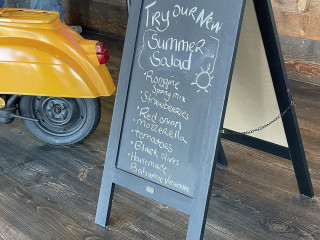 Try Our New
Summer
Salad
• Romaine
Spring mix
• Strawberries
• Red onion
• mozzarella
• tomatoes
• Black olives
• Homemade
Balsamic Vinaigrette